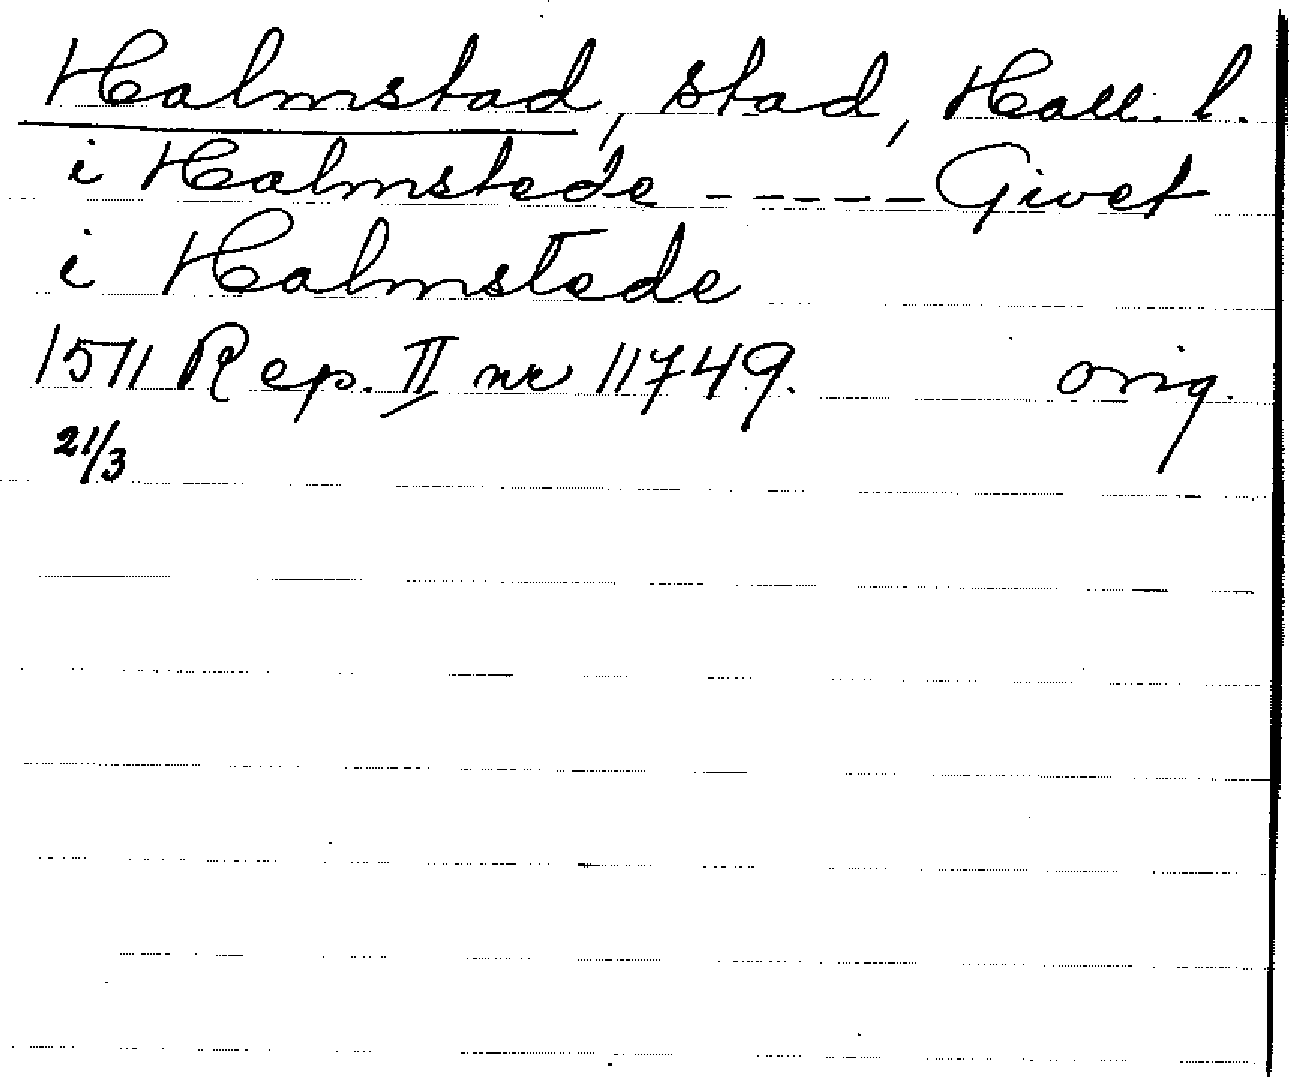 Halmstad, stad, Hall. l.
i Halmstede ----- Givet
i Halmstede
1511 Rep. II nr 11749. orig.
21/3